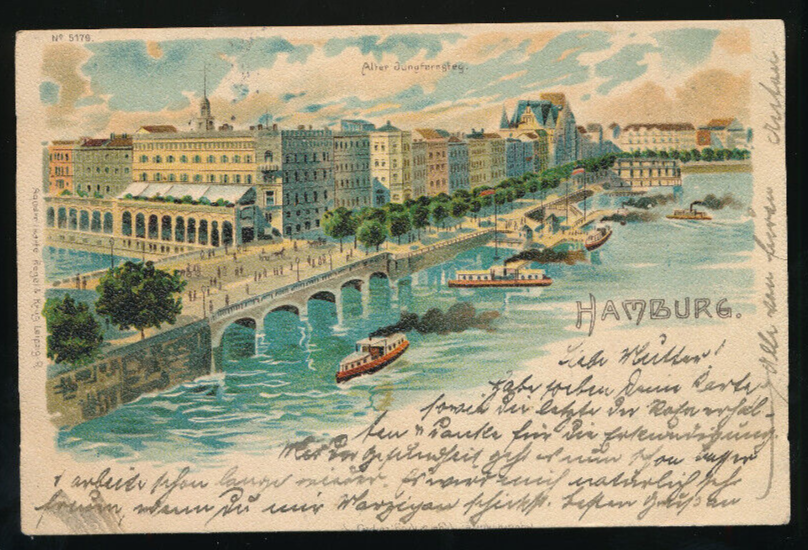 No 5179.
Alter Jungfernstieg.
HAMBURG.
Liebe Mutter!
Habe soeben Deine Karte
sowie die letzte der Rosa erhal-
ten u danke für die Erkundigung.
Mit der Gesundheit geht es nun schon besser
arbeite schon lange wieder. Es wird mich natürlich sehr
freuen, wenn Du mir Marzipan schickst. Besten Gruß an
Alle